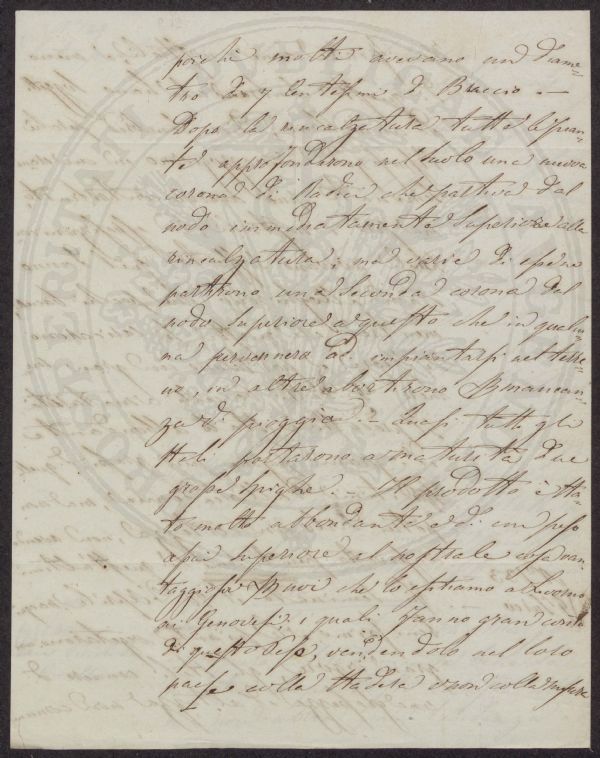 poichè molte avevano un diame-
tro di y Centesimi di Braccio. —
Dopo la rincalzatura tutte le pian-
te approfondirono nel suolo una nuova
corona di Radici che partiva dal
nodo immediatamente Superiore alla
rincalzatura; ma varie di esse ne
partirono una Seconda corona dal
nodo Superiore a questo che in qualcu-
na pervenne ad impiantarsi nel terre-
no, in altre abortirono P mancan-
za di pioggia. — Quasi tutti gli
Steli portarono a maturità due
grosse Spighe. — Il prodotto è sta-
to molto abbondante e di un peso
assai Superiore al nostrale cosa van-
taggiosissa P noi che lo esitiamo a Livorno
ai Genovesi, i quali fanno gran conto
di questo Peso, vendendolo nel loro
paese colla Stadera e non colla misura